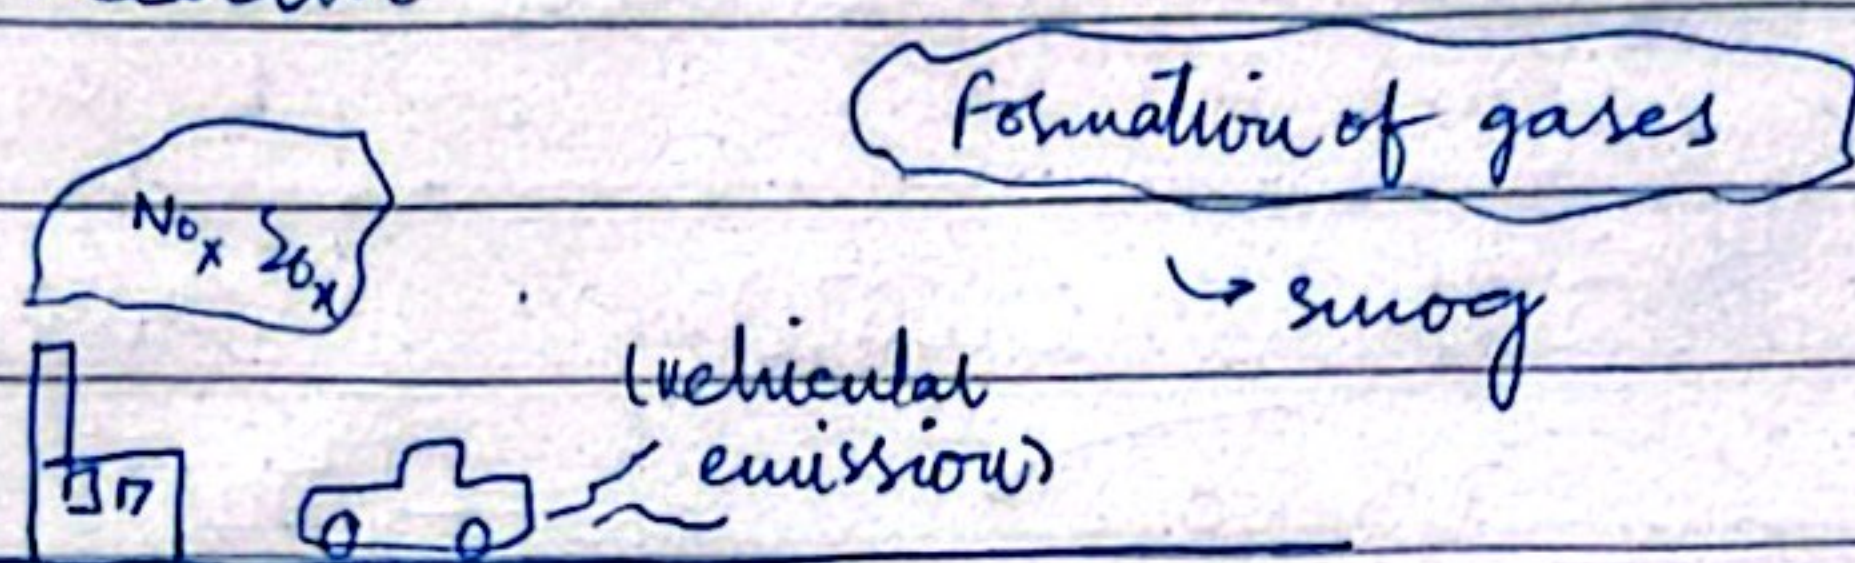 Formation of gases
NOx SOx
→ smog
(vehicular
emission)